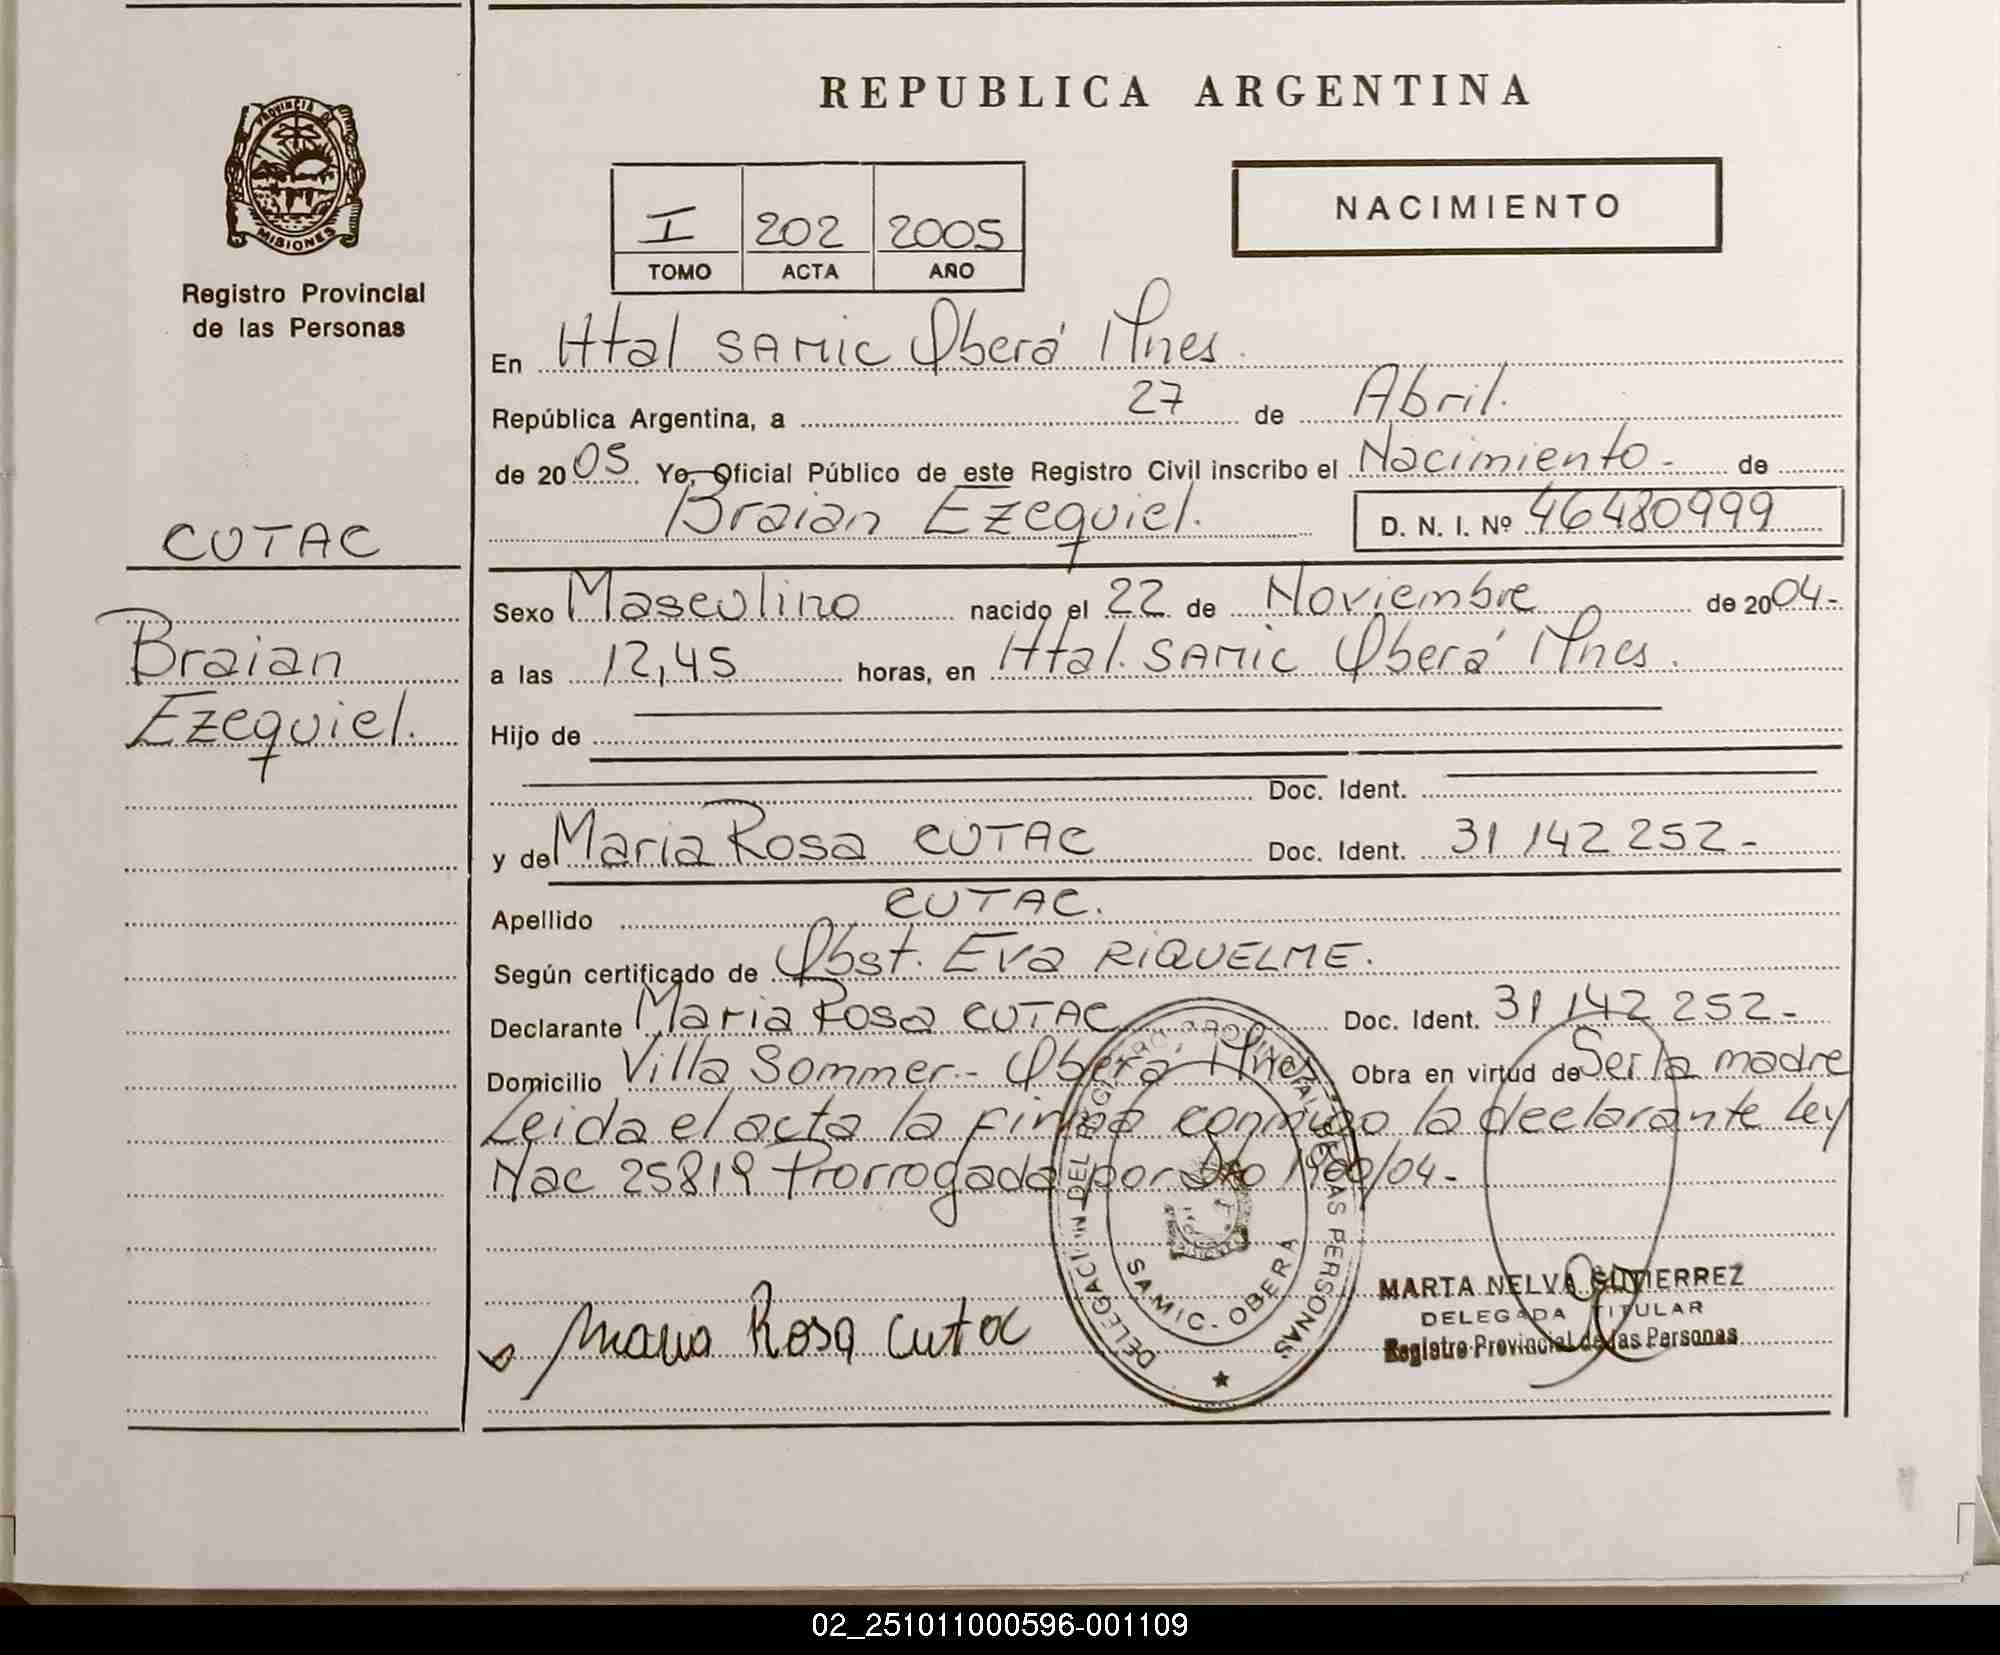 REPUBLICA ARGENTINA
PROVINCIA DE
MISIONES
Registro Provincial
de las Personas
I 202 2005
TOMO ACTA AÑO
NACIMIENTO
En Htal SAMIC Oberá Mnes.
República Argentina, a 27 de Abril.
de 2005 Yo, Oficial Público de este Registro Civil inscribo el Nacimiento - de
Braian Ezequiel. D. N. I. Nº 46480999
CUTAC
Braian
Ezequiel.
Sexo Masculino nacido el 22 de Noviembre de 2004-
a las 12,45 horas, en Htal. SAMIC Oberá Mnes.
Hijo de
Doc. Ident.
y de Maria Rosa CUTAC Doc. Ident. 31 142 252-
Apellido CUTAC.
Según certificado de Obst. Eva RIQUELME.
Declarante Maria Rosa CUTAC Doc. Ident. 31 142 252-
Domicilio Villa Sommer - Oberá Mnes Obra en virtud de Ser la madre
Leida el acta la firma conmigo la declarante Ley
Nac 25819 Prorrogada por Dto 1900/04-
DELEGACION DEL REGISTRO PROVINCIAL DE LAS PERSONAS
SAMIC. OBERA
Maria Rosa Cutac
MARTA NELVA GUTIERREZ
DELEGADA TITULAR
Registro Provincial de las Personas
02_251011000596-001109